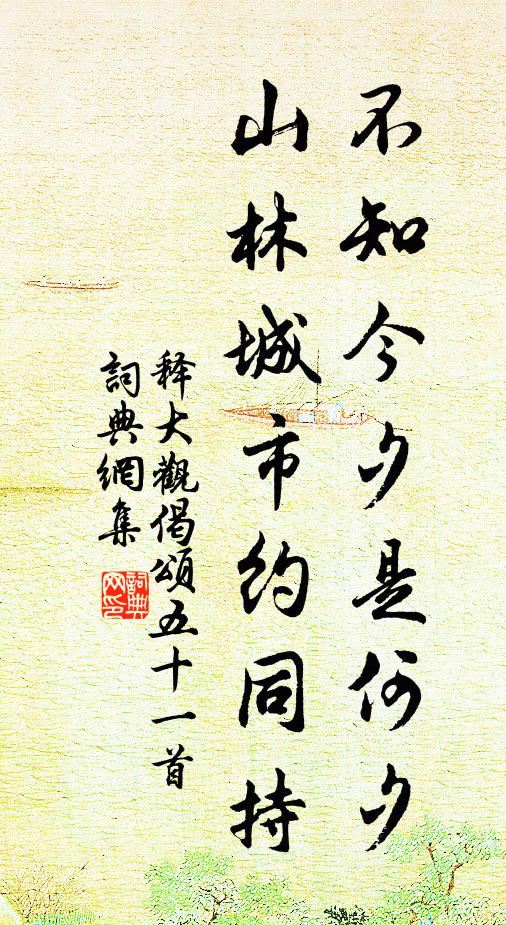 不知今夕是何夕
山林城市约同持
释大觀偈頌五十一首
詞典網集
詞典
网印